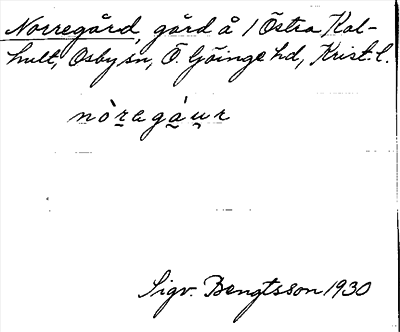 Norregård, gård å 1 Östra Kal-
hult, Osby sn, Ö. Göinge hd, Krist. l.
nòṟagá̱u̯r
Sigv. Bengtsson 1930